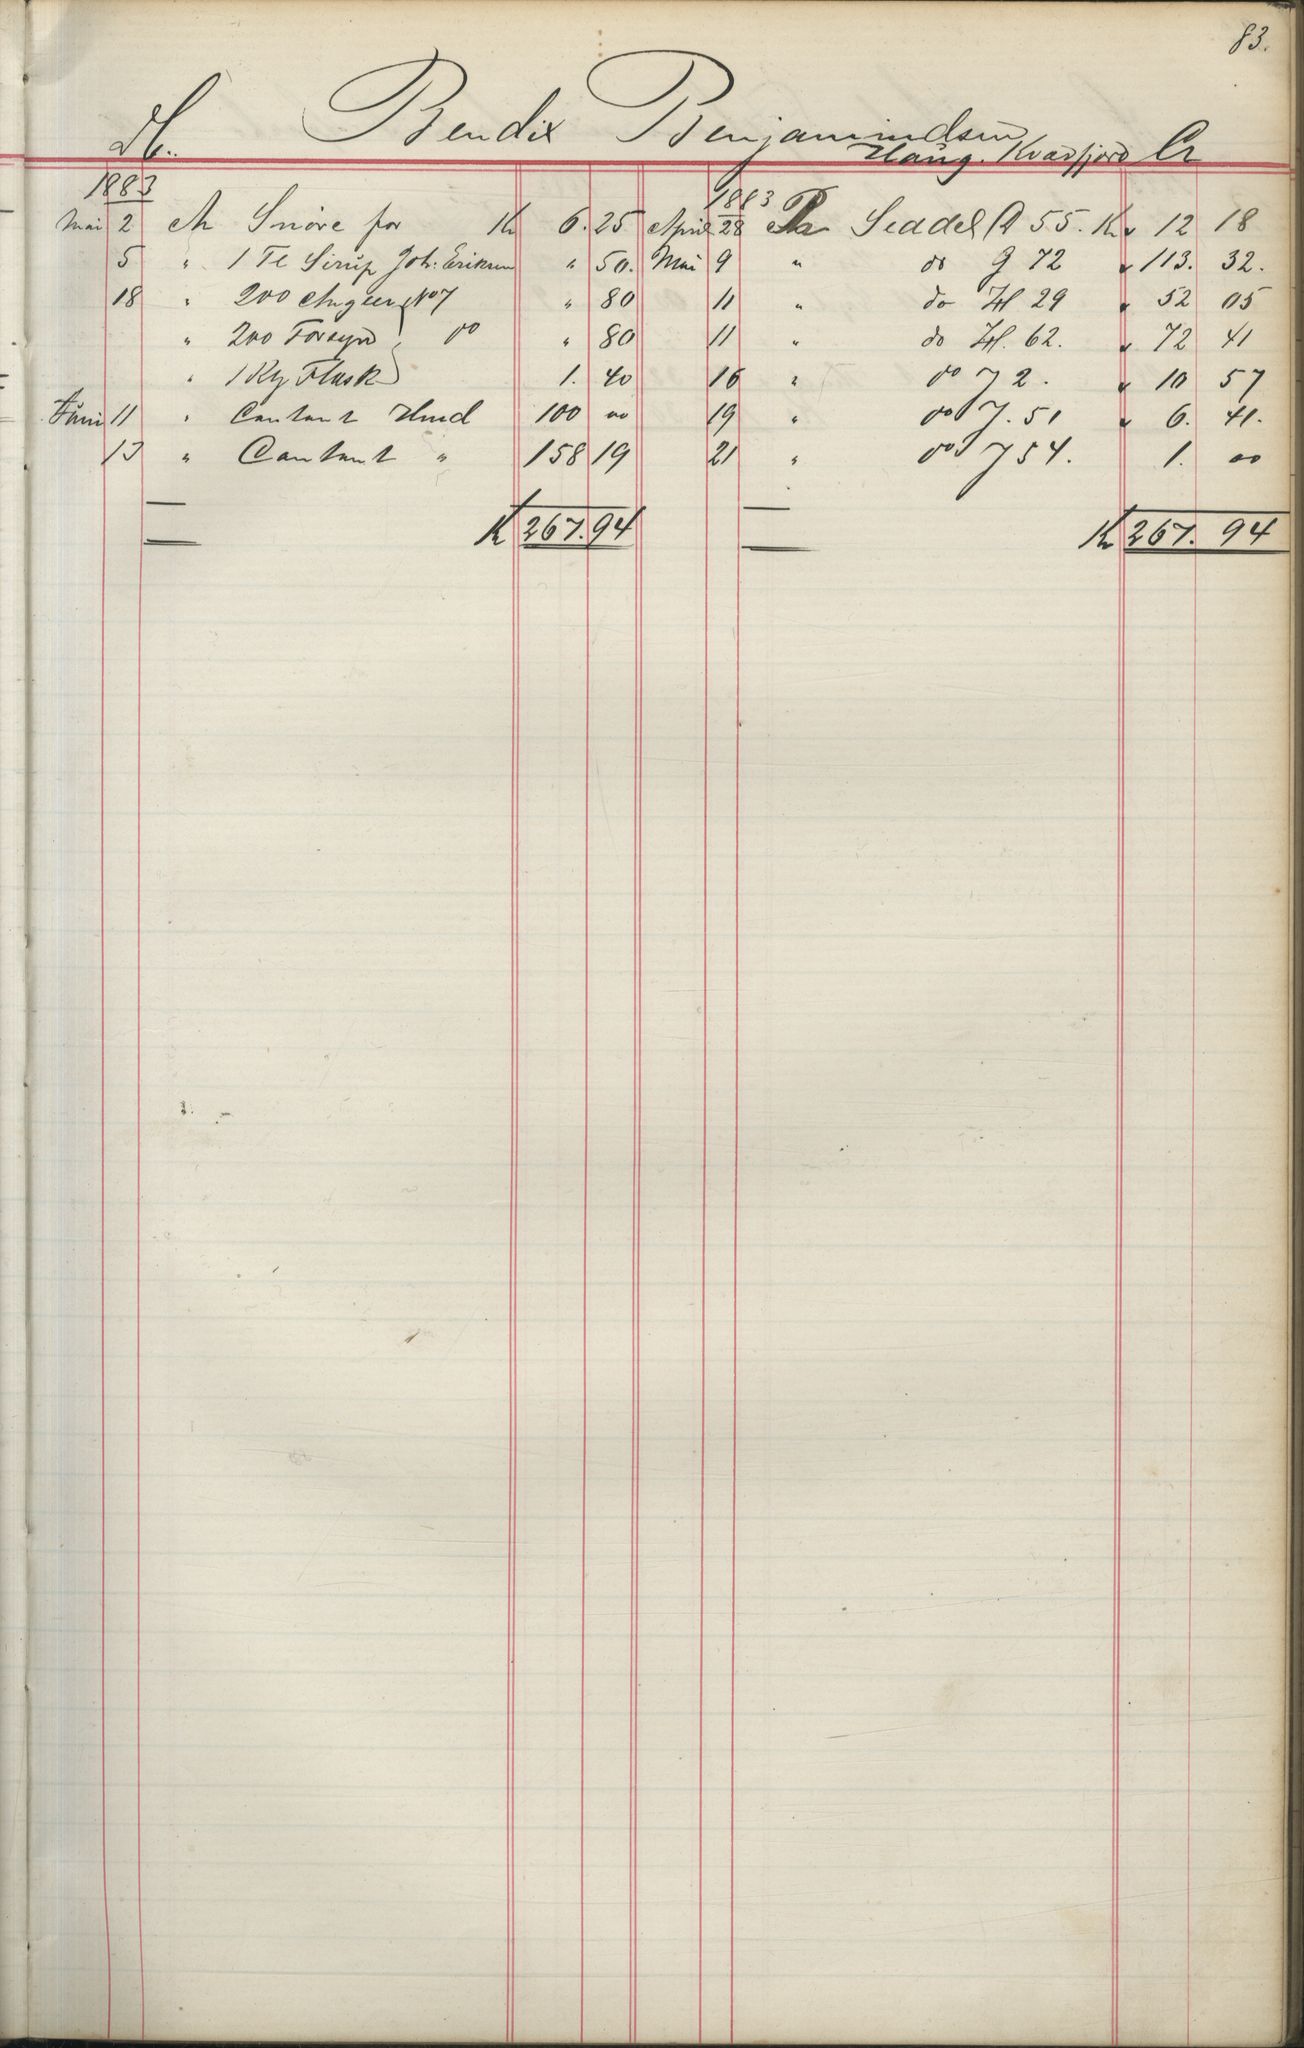 83.
Bendix Benjamindsen
Dt. Haug. Kvædfjord Cr
1883 1883
Mai 2 An Snöre for Kr 6.25 April 28 Pr Seddel A 55. Kr 12 18
5 " 1 Fl Sirup Joh. Eriksen " 50. Mai 9 " do G 72 " 113. 32.
18 " 200 Angler No 7 " 80 11 " do H 29 " 52 05
" 200 Forsyn do " 80 11 " do H. 62. " 72 41
" 1 Kg Flesk 1. 40 16 " do J 2. " 10 57
Juni 11 " Contant 100 00 19 " do J. 51 " 6. 41.
13 " Contant " 158 19 21 " do J 54. 1. 00
Kr 267.94 Kr 267. 94